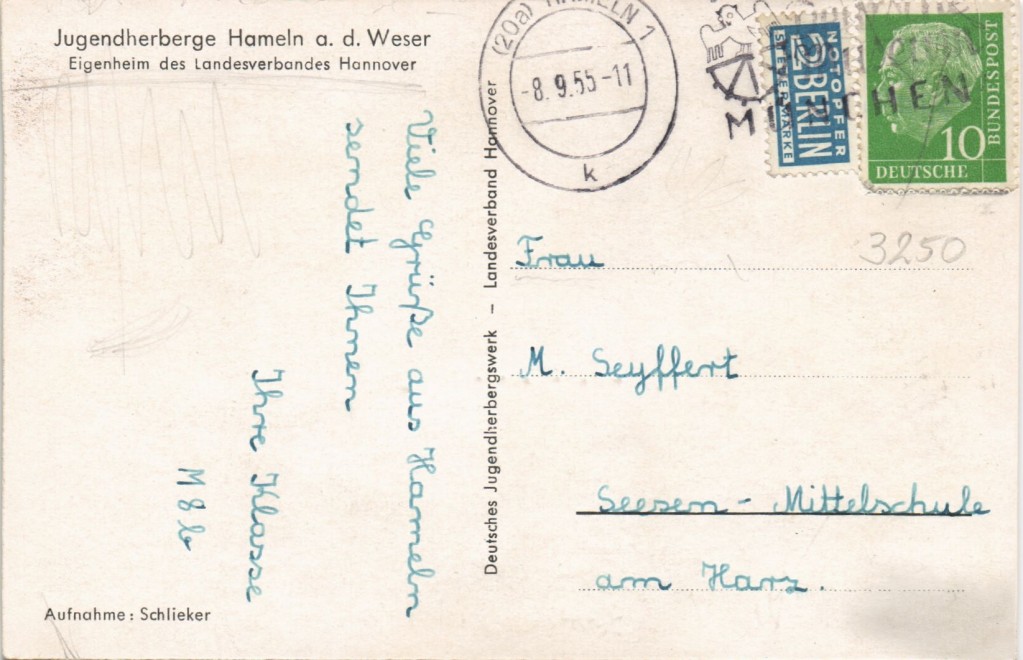 Jugendherberge Hameln a. d. Weser
Eigenheim des Landesverbandes Hannover
Viele Grüße aus Hameln
sendet Ihnen
Ihre Klasse
M 8 b
Aufnahme: Schlieker
Deutsches Jugendherbergswerk – Landesverband Hannover
(20a) HAMELN 1
-8.9.55-11
k
MÜNCHEN
NOTOPFER
2 BERLIN
STEUERMARKE
10
DEUTSCHE
BUNDESPOST
3250
Frau
M. Seyffert
Seesen - Mittelschule
am Harz.